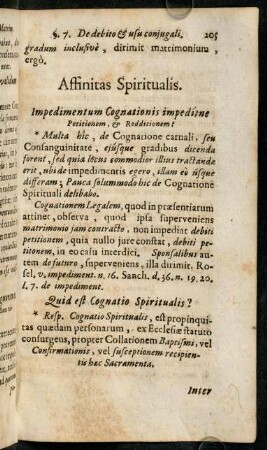 §. 7. De debito & usu conjugali. 205
gradum inclusivè, dirimit matrimonium,
ergò.
Affinitas Spiritualis.
Impedimentum Cognationis impeditne
Petitionem, & Redditionem?
* Multa hîc, de Cognatione carnali, seu
Consanguinitate, ejúsque gradibus dicenda
forent, sed quia locus commodior illius tractanda
erit, ubi de impedimentis egero, illam eò usque
differam; Pauca solummodo hîc de Cognatione
Spirituali delibabo.
Cognationem Legalem, quod in præsentiarum
attinet, observa, quod ipsa superveniens
matrimonio jam contracto, non impediat debiti
petitionem, quia nullo jure constat, debiti pe-
titionem, in eo casu interdici. Sponsalibus au-
tem de futuro, superveniens, illa dirimit. Ro-
sel, v. impediment. n. 16. Sanch. d. 36. n. 19. 20.
l. 7. de impediment.
Quid est Cognatio Spiritualis?
* Resp. Cognatio Spiritualis, est propinqui-
tas quædam personarum, ex Ecclesiæ statuto
consurgens, propter Collationem Baptismi, vel
Confirmationis, vel susceptionem recipien-
tis hæc Sacramenta.
Inter